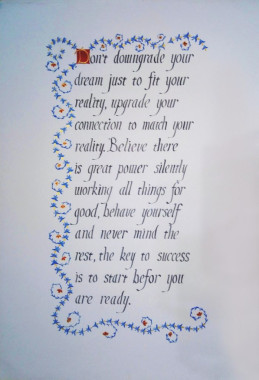 Don't downgrade your
dream just to fit your
reality, upgrade your
connection to match your
reality. Believe there
is great power silently
working all things for
good, behave yourself
and never mind the
rest, the key to success
is to start befor you
are ready.